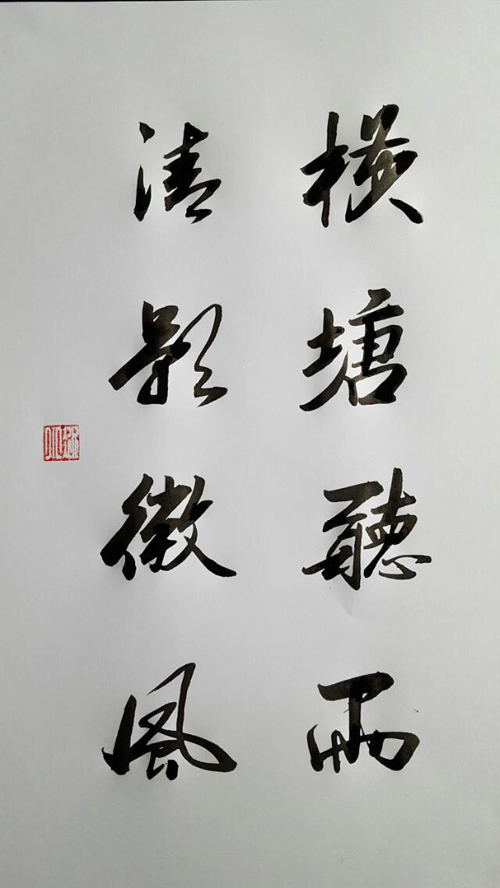 橫塘聽雨
清影微風